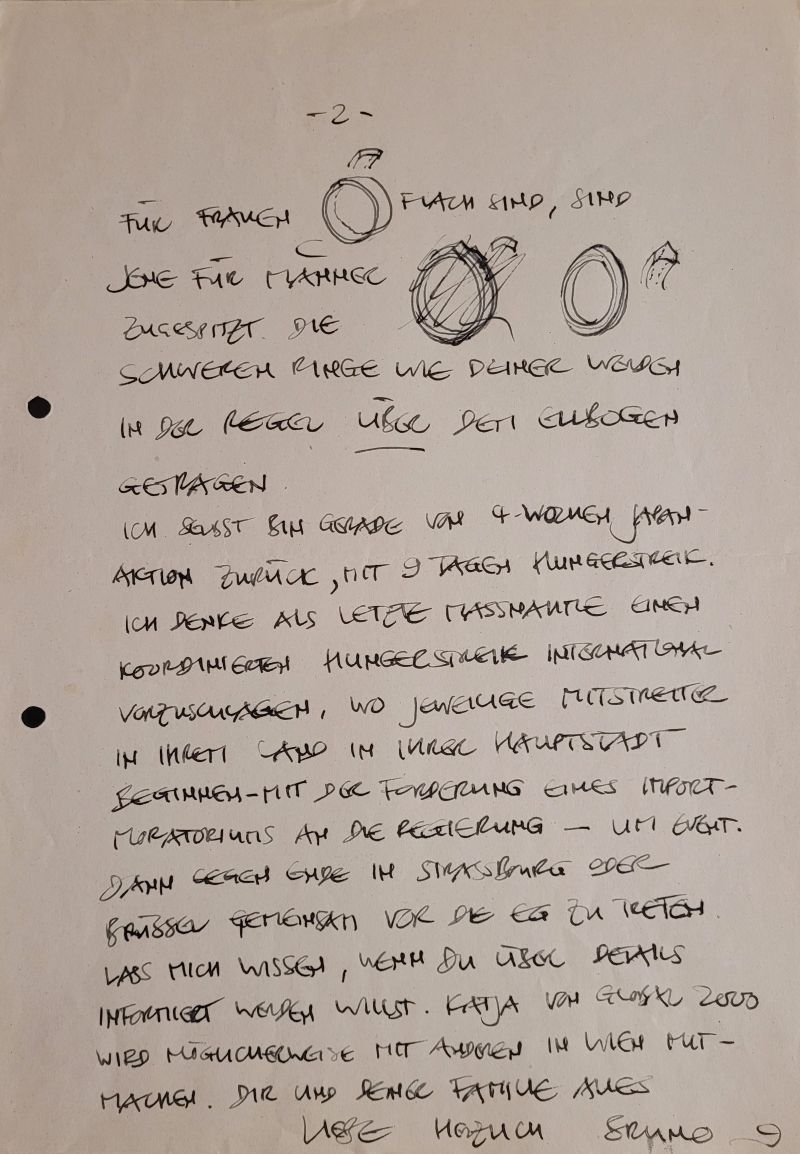 -2-
FÜR FRAUEN FLACH SIND, SIND
JENE FÜR MÄNNER
ZUGESPITZT. DIE
SCHWEREN RINGE WIE DEINER WERDEN
IN DER REGEL ÜBER DEM ELLBOGEN
GETRAGEN.
ICH SELBST BIN GERADE VON 4-WOCHEN JAPAN-
AKTION ZURÜCK, MIT 9 TAGEN HUNGERSTREIK.
ICH DENKE ALS LETZTE MASSNAHME EINEN
KOORDINIERTEN HUNGERSTREIK INTERNATIONAL
VORZUSCHLAGEN, WO JEWEILIGE MITSTREITER
IN IHREM LAND IN IHRER HAUPTSTADT
BEGINNEN-MIT DER FORDERUNG EINES IMPORT-
MORATORIUMS AN DIE REGIERUNG — UM EVENT.
DANN GEGEN ENDE IN STRASSBOURG ODER
BRÜSSEL GEMEINSAM VOR DIE EG ZU TRETEN.
LASS MICH WISSEN, WENN DU ÜBER DETAILS
INFORMIERT WERDEN WILLST. KATJA VON GLOBAL 2000
WIRD MÖGLICHERWEISE MIT ANDEREN IN WIEN MIT-
MACHEN. DIR UND DEINER FAMILIE ALLES
LIEBE HERZLICH BRUNO